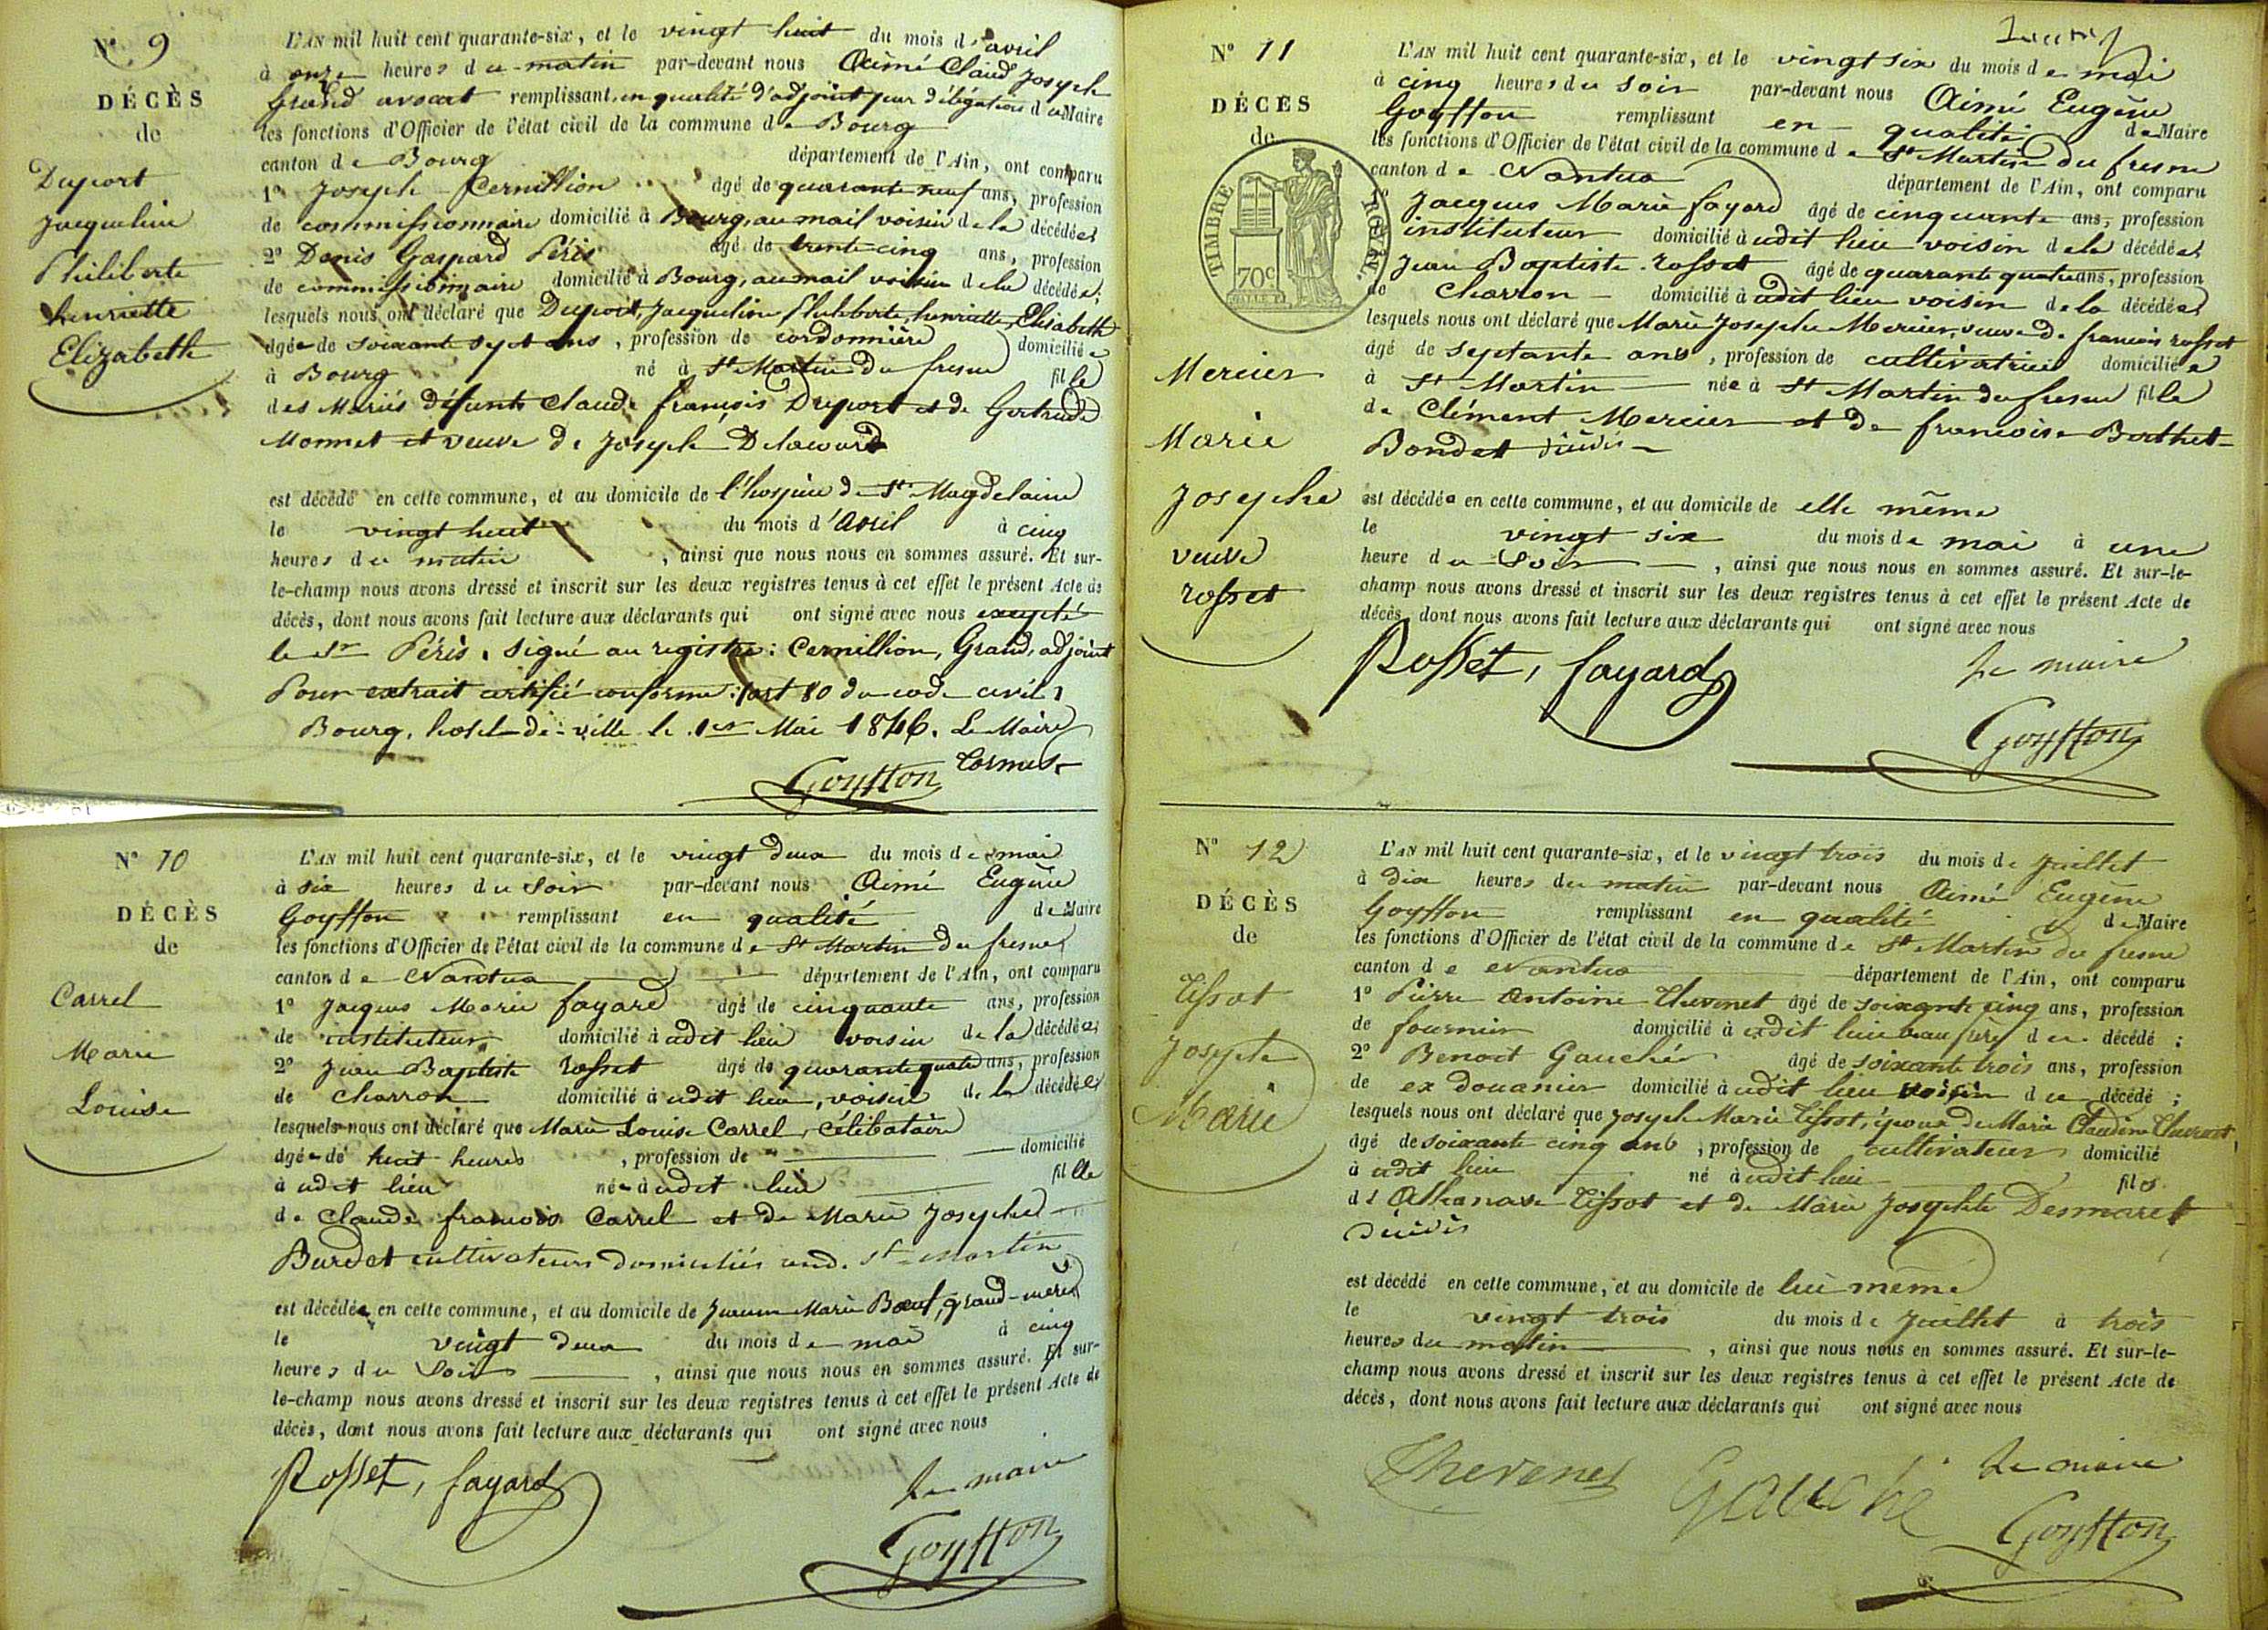 N° 9
DÉCÈS
de
Duport
Jacqueline
Philiberte
henriette
Elizabeth
L'AN mil huit cent quarante-six, et le vingt huit du mois d'avril
à onze heures du matin par-devant nous Aimé Claud Joseph
Grand avocat remplissant, en qualité d'adjoint par délégation du Maire
les fonctions d'Officier de l'état civil de la commune de Bourg
canton de Bourg département de l'Ain, ont comparu
1° Joseph Cernillion âgé de quarante neuf ans, profession
de commissionnaire domicilié à Bourg, au mail voisin de la décédée;
2° Denis Gaspard Péris âgé de trente-cinq ans, profession
de commissionnaire domicilié à Bourg, au mail voisin de la décédée;
lesquels nous ont déclaré que Duport, Jacqueline, Philiberte, henriette, Elisabeth
âgée de soixante sept ans, profession de cordonnière domiciliée
à Bourg né à St Martin du fresne fille
des Mariés défunts Claude françois Duport et de Gertrude
Monnet et veuve de Joseph Delaward
est décédé en cette commune, et au domicile de l'hospice de Ste Magdelaine
le vingt huit du mois d'Avril à cinq
heures du matin, ainsi que nous nous en sommes assuré. Et sur-
le-champ nous avons dressé et inscrit sur les deux registres tenus à cet effet le présent Acte de
décès, dont nous avons fait lecture aux déclarants qui ont signé avec nous excepté
le Sr Péris. Signé au registre: Cernillion, Grand, adjoint
Pour extrait certifié conforme: (art 80 du code civil)
Bourg, hotel-de-ville le 1er Mai 1846. Le Maire
Goyffon
N° 10
DÉCÈS
de
Carrel
Marie
Louise
L'AN mil huit cent quarante-six, et le vingt deux du mois de mai
à six heures du soir par-devant nous Aimé Eugène
Goyffon remplissant en qualité de Maire
les fonctions d'Officier de l'état civil de la commune de St Martin du fresne
canton de Nantua département de l'Ain, ont comparu
1° Jacques Marie fayard âgé de cinquante ans, profession
de instituteur domicilié à udit lieu voisin de la décédée;
2° Jean Baptiste rosset âgé de quarante quatre ans, profession
de charron domicilié à udit lieu, voisin de la décédée;
lesquels nous ont déclaré que Marie Louise Carrel, célibataire
âgée de huit heures, profession de domicilié
à udit lieu née à udit lieu fille
de Claude françois Carrel et de Marie Josephe
Burdet cultivateurs domiciliés aud. St Martin
est décédée en cette commune, et au domicile de Jeanne Marie Bœuf, grand-mère
le vingt deux du mois de mai à cinq
heures du Soir, ainsi que nous nous en sommes assuré. Et sur-
le-champ nous avons dressé et inscrit sur les deux registres tenus à cet effet le présent Acte de
décès, dont nous avons fait lecture aux déclarants qui ont signé avec nous
Rosset, fayard
Le maire
Goyffon
N° 11
DÉCÈS
de
TIMBRE ROYAL
70c
Mercier
Marie
Josephe
veuve
rosset
L'AN mil huit cent quarante-six, et le vingt six du mois de mai
à cinq heures du soir par-devant nous Aimé Eugène
Goyffon remplissant en qualité de Maire
les fonctions d'Officier de l'état civil de la commune de St Martin du fresne
canton de Nantua département de l'Ain, ont comparu
1° Jacques Marie fayard âgé de cinquante ans, profession
instituteur domicilié à udit lieu voisin de la décédée;
Jean Baptiste rosset âgé de quarante quatre ans, profession
de Charron domicilié à udit lieu voisin de la décédée;
lesquels nous ont déclaré que Marie Josephe Mercier, veuve de francois rosset
âgé de septante ans, profession de cultivatrice domiciliée
à St Martin née à St Martin du fresne fille
de Clément Mercier et de francoise Berthet-
Bondet décédés
est décédée en cette commune, et au domicile de elle même
le vingt six du mois de mai à une
heure du Soir, ainsi que nous nous en sommes assuré. Et sur-le-
champ nous avons dressé et inscrit sur les deux registres tenus à cet effet le présent Acte de
décès, dont nous avons fait lecture aux déclarants qui ont signé avec nous
Rosset, fayard
Le maire
Goyffon
N° 12
DÉCÈS
de
Tissot
Joseph
Marie
L'AN mil huit cent quarante-six, et le vingt trois du mois de Juillet
à dix heures du matin par-devant nous Aimé Eugène
Goyffon remplissant en qualité de Maire
les fonctions d'Officier de l'état civil de la commune de St Martin du fresne
canton de Nantua département de l'Ain, ont comparu
1° Pierre Antoine Thevenet âgé de soixante cinq ans, profession
de fournier domicilié à udit lieu beau frère du décédé;
2° Benoit Gauché âgé de soixante trois ans, profession
de ex douanier domicilié à udit lieu voisin du décédé;
lesquels nous ont déclaré que Joseph Marie Tissot, époux de Marie Claudine Thevenet
âgé de soixante cinq ans, profession de cultivateur domicilié
à udit lieu né à udit lieu fils
de Athanase Tissot et de Marie Josephte Desmaret
décédés
est décédé en cette commune, et au domicile de lui même
le vingt trois du mois de Juillet à trois
heures du matin, ainsi que nous nous en sommes assuré. Et sur-le-
champ nous avons dressé et inscrit sur les deux registres tenus à cet effet le présent Acte de
décès, dont nous avons fait lecture aux déclarants qui ont signé avec nous
Thevenet Gauché
Le maire
Goyffon